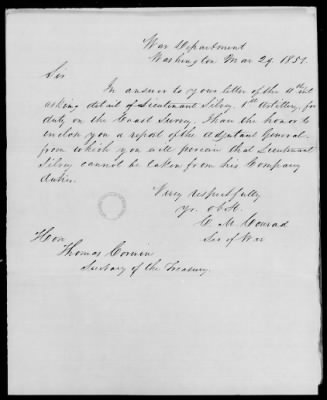 War Department
Washington Mar 29. 1851.
Sir
In answer to your letter of the 11th inst
asking detail of Lieutenant Silvey, 1st Artillery, for
duty on the Coast Survey, I have the honor to
enclose you a report of the Adjutant General
from which you will perceive that Lieutenant
Silvey cannot be taken from his Company
duties.
Very respectfully
Yr. obt.
C. M. Conrad
Sec of War
Hon
Thomas Corwin
Secretary of the Treasury.